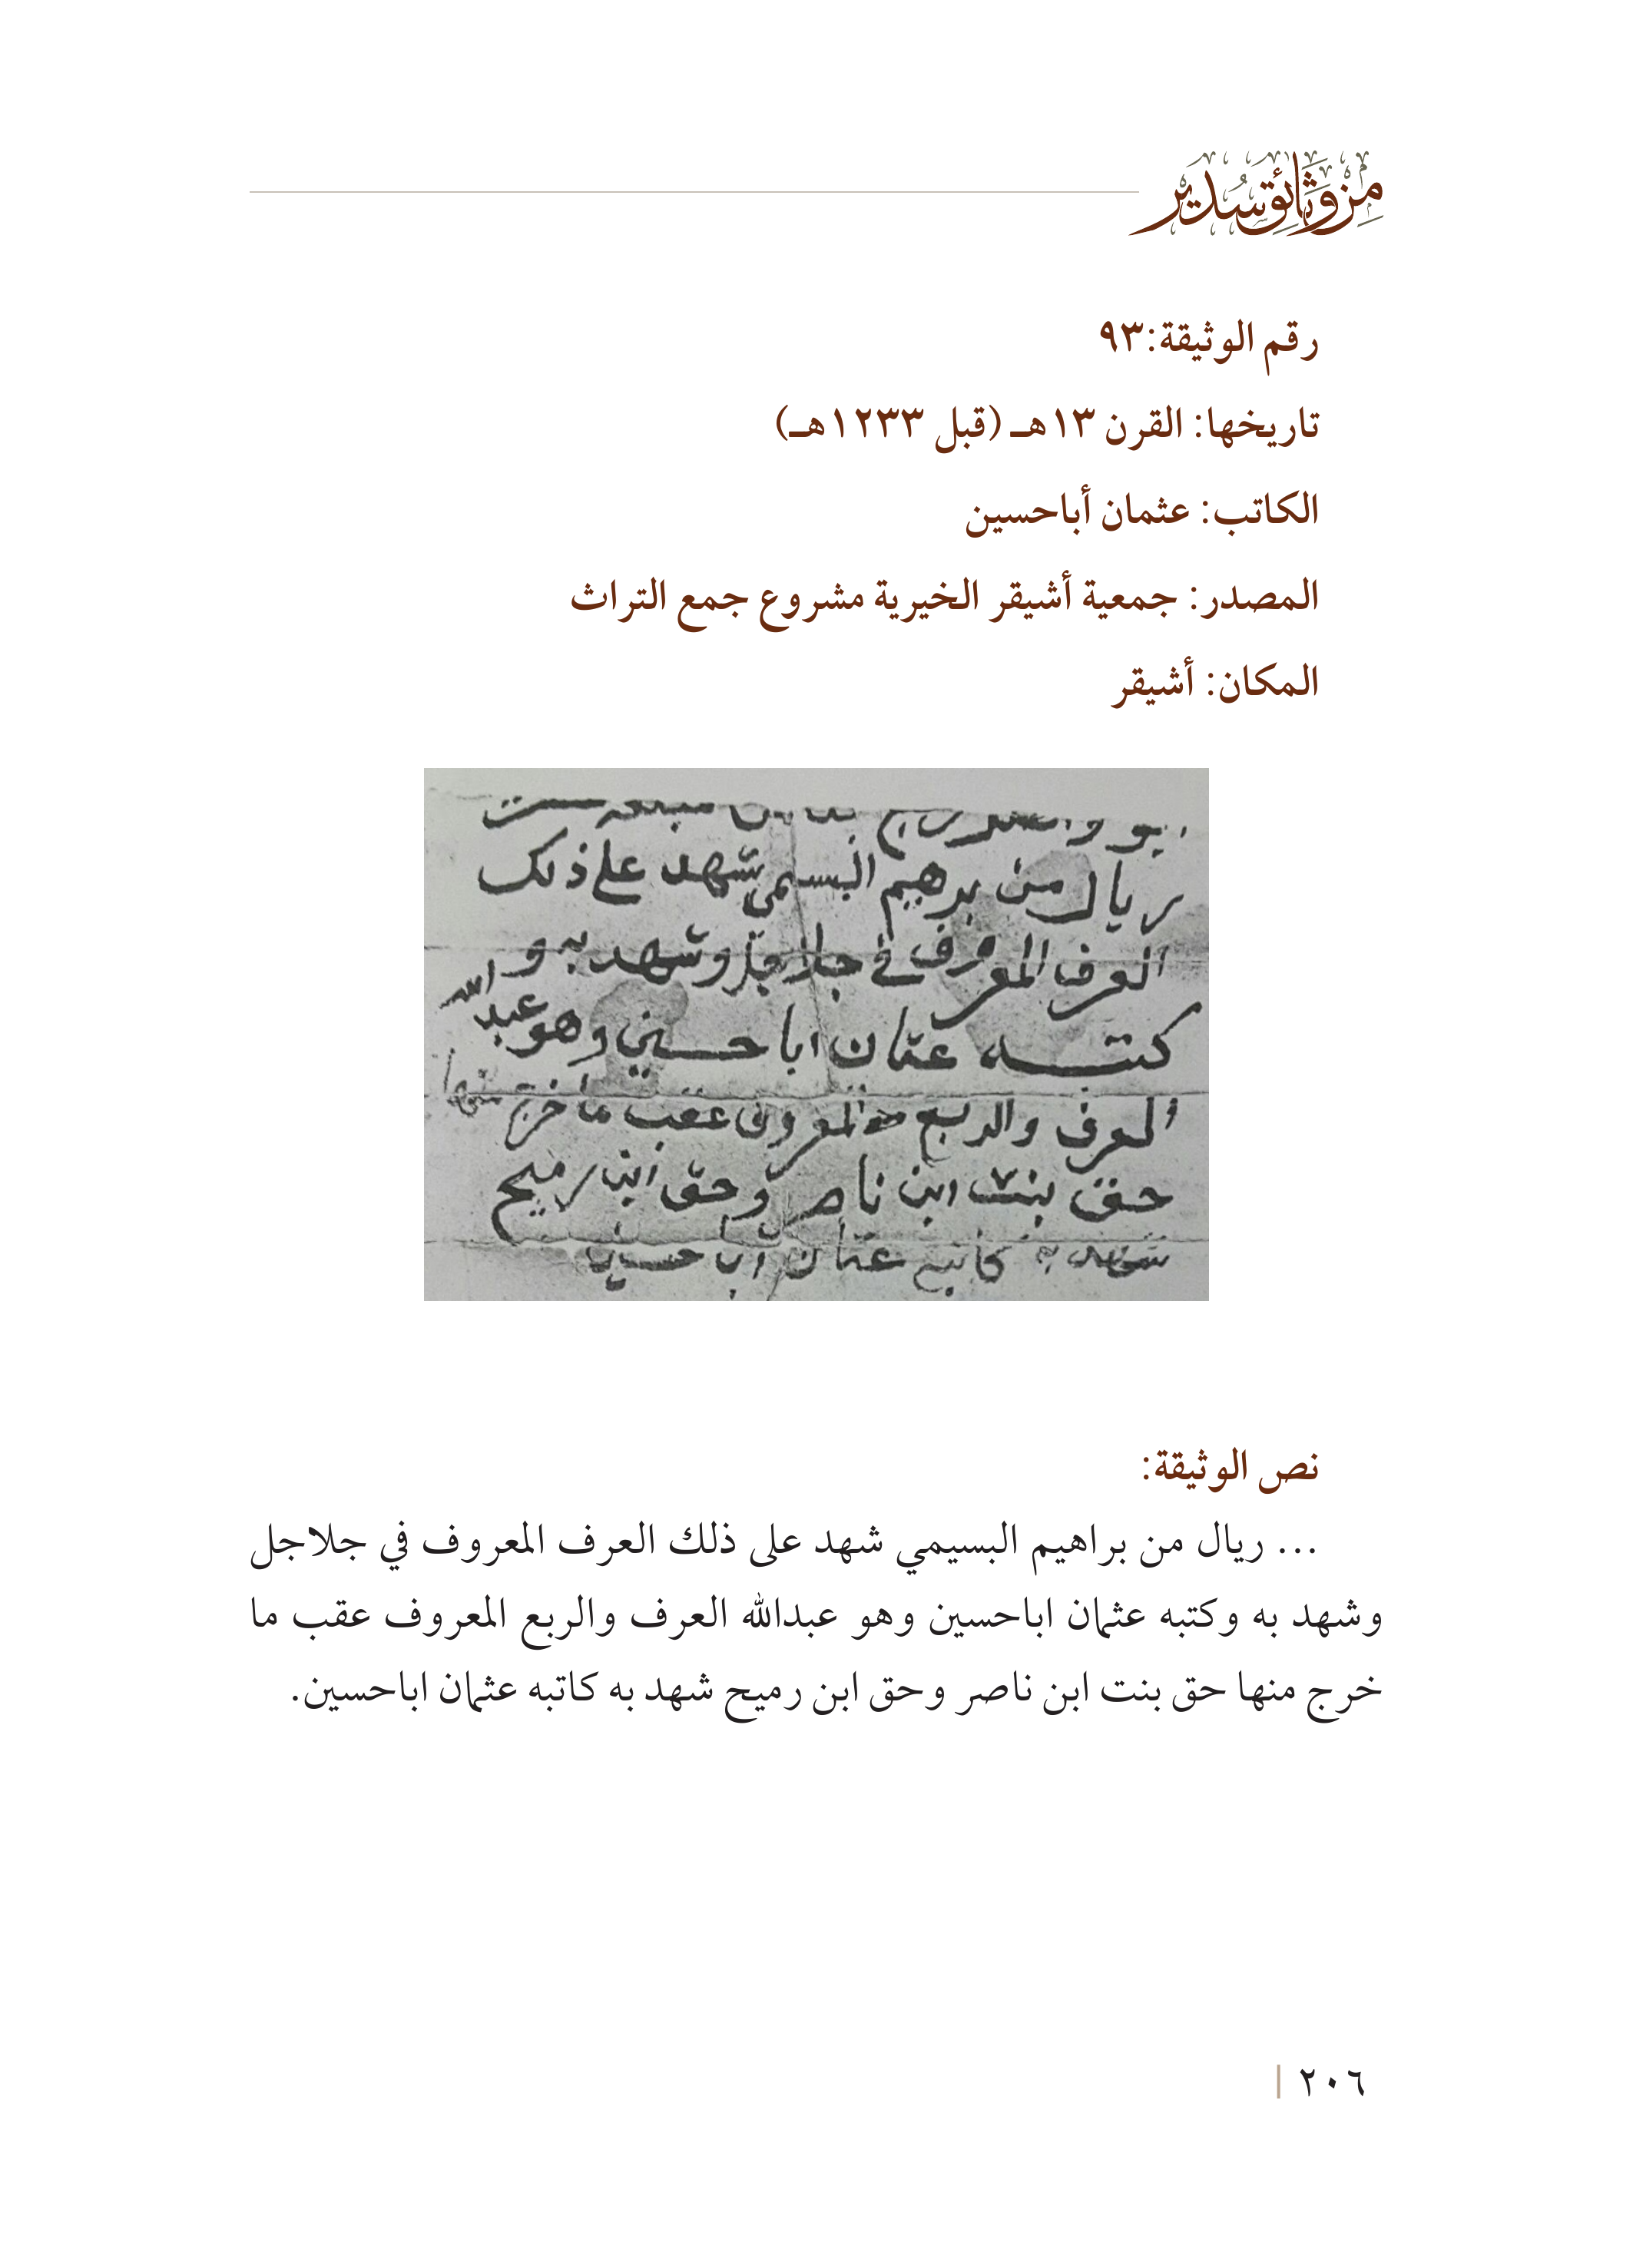 من وثائق سدير
رقم الوثيقة:٩٣
تاريخها: القرن ١٣هـ (قبل ١٢٣٣هـ)
الكاتب: عثمان أباحسين
المصدر: جمعية أشيقر الخيرية مشروع جمع التراث
المكان: أشيقر
ريال من برهيم البسيمي شهد على ذلك
العرف المعروف في جلاجل وشهد به و
كتبه عثمان اباحسين وهو عبدالله
العرف والربع المعروف عقب ما خرج منها
حق بنت ابن ناصر وحق ابن رميح
شهد به كاتبه عثمان اباحسين
نص الوثيقة:
... ريال من براهيم البسيمي شهد على ذلك العرف المعروف في جلاجل
وشهد به وكتبه عثمان اباحسين وهو عبدالله العرف والربع المعروف عقب ما
خرج منها حق بنت ابن ناصر وحق ابن رميح شهد به كاتبه عثمان اباحسين.
٢٠٦